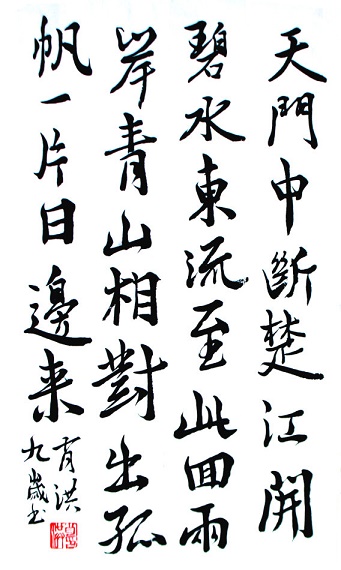 天門申斷楚江開
碧水東流至此囬雨
岸青山相對出孤
帆一片日邊来
洪
九歲书